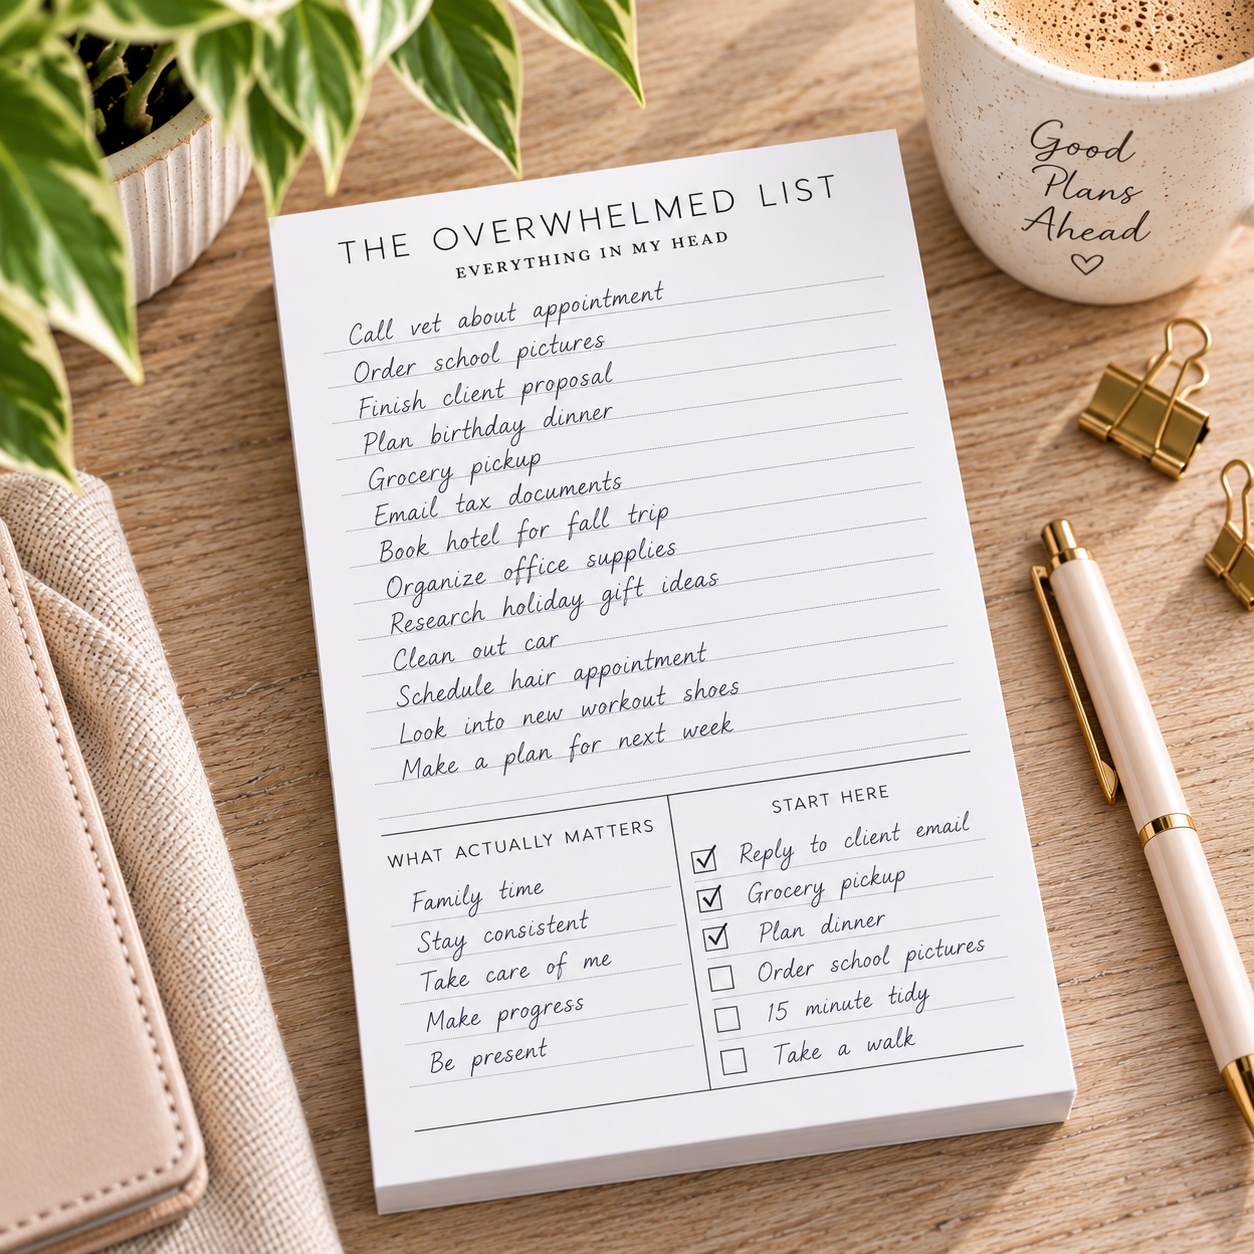 THE OVERWHELMED LIST
EVERYTHING IN MY HEAD
Call vet about appointment
Order school pictures
Finish client proposal
Plan birthday dinner
Grocery pickup
Email tax documents
Book hotel for fall trip
Organize office supplies
Research holiday gift ideas
Clean out car
Schedule hair appointment
Look into new workout shoes
Make a plan for next week
WHAT ACTUALLY MATTERS
Family time
Stay consistent
Take care of me
Make progress
Be present
START HERE
Reply to client email
Grocery pickup
Plan dinner
Order school pictures
15 minute tidy
Take a walk
Good
Plans
Ahead